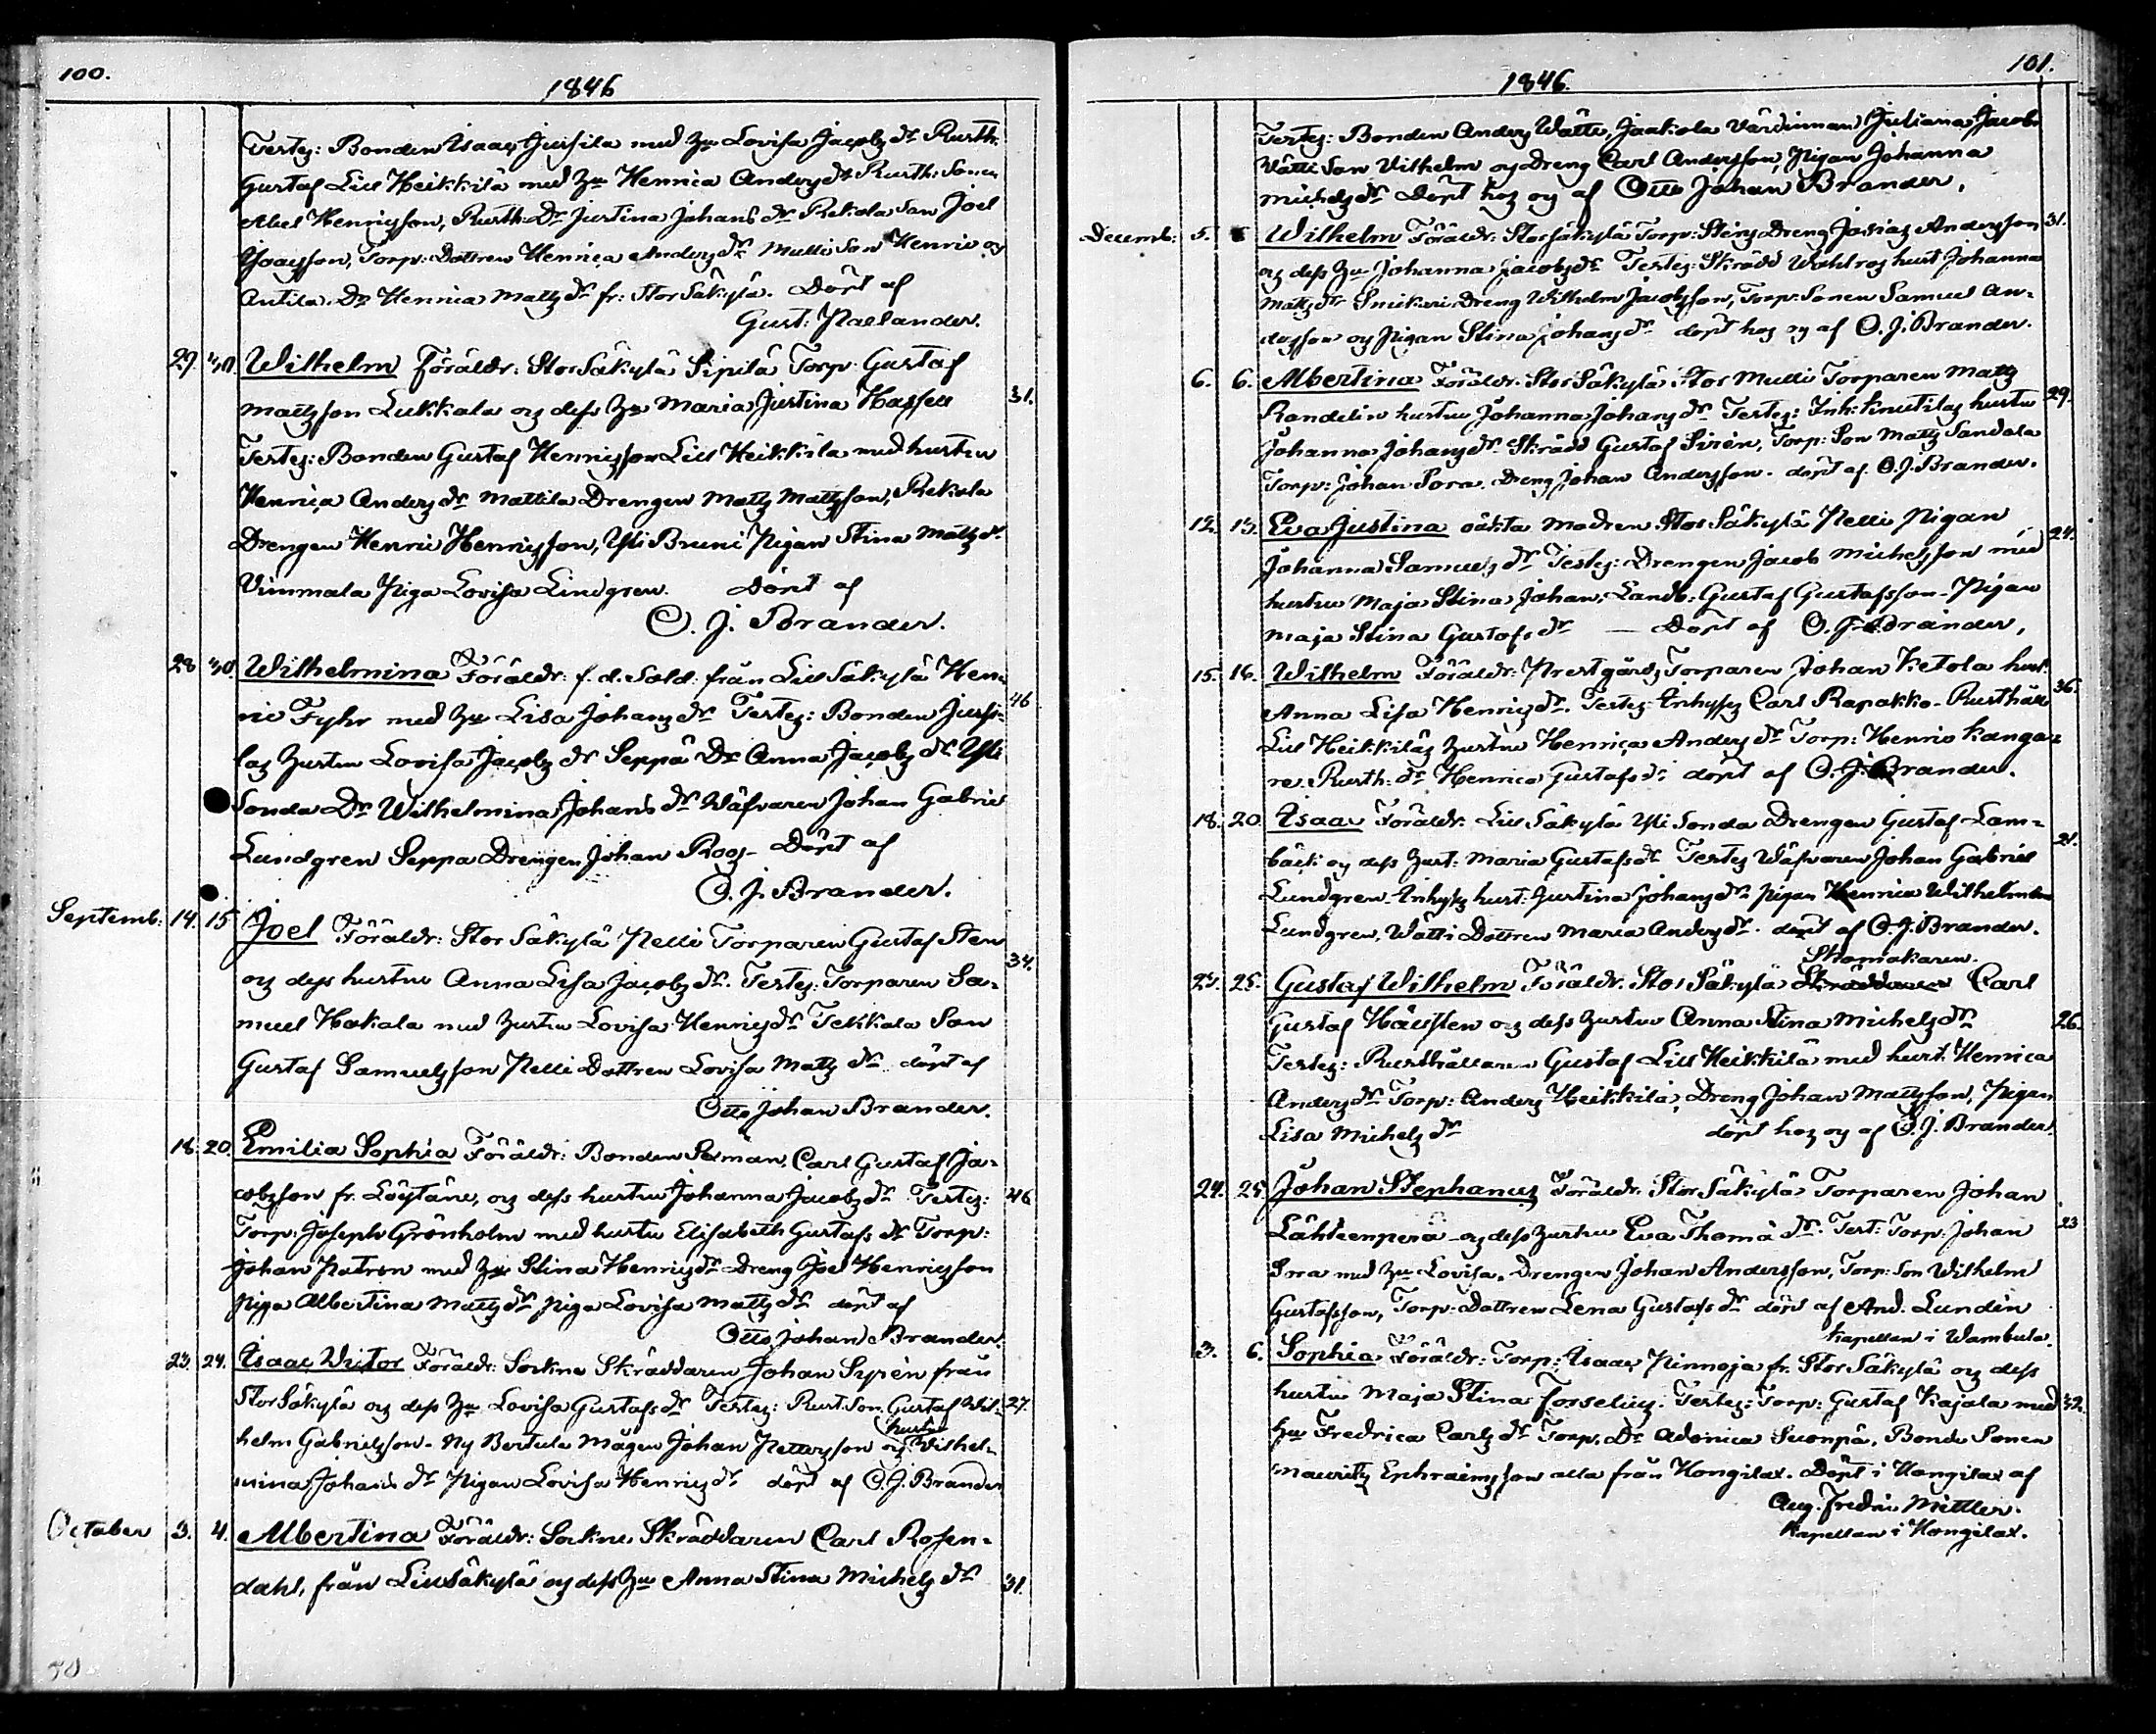 100.
1846
Testes: Bonden Isaac Jussila med Hu Lovisa Jacobs dr Rusth:
Gustaf Lill Heikkilä med Hu Henrica Anders dr Rusth: Sonen
Abel Henricsson, Rusth: Dr Justina Johans dr Rekola Son Joel
Isaacsson, Torp: Dottren Henrica Anders dr Mulli Son Henric og
Antila Dr Henrica Matts dr fr: Stor Säkylä. Döpt af
Gust: Paelander.
29. 30. Wilhelm Föräldr: Stor Säkylä Sipilä Torp: Gustaf
Mattsson Lukkala og dess Hu Maria Justina Hassell 31.
Testes: Bonden Gustaf Henricsson Lill Heikkilä med hustru
Henrica Anders dr Mattila Drengen Matts Mattsson, Rekola
Drengen Henric Henricsson, Yli Bruni Pigan Stina Matts dr
Vimmala Piga Lovisa Lindgren. Döpt af
O. J. Brander.
28 30. Wilhelmina Föräldr: f. d. Sold: från Lill Säkylä Hen-
ric Fyhr med Hu Lisa Johans dr Testes: Bonden Jussi- 46
las Hustru Lovisa Jacobs dr Seppä Dr Anna Jacobs dr Yli
Sonda Dr Wilhelmina Johans dr Wäfvaren Johan Gabriel
Lundgren Seppä Drengen Johan Roos- Döpt af
O. J. Brander.
Septemb: 14. 15 Joel Föräldr: Stor Säkylä Pelli Torparen Gustaf Sten
og dess hustru Anna Lisa Jacobs dr. Testes: Torparen Sa- 34.
muel Hakala med Hustru Lovisa Henrics dr Tekkala Son
Gustaf Samuelsson Pelli Dottren Lovisa Matts dr döpt af
Otto Johan Brander.
18. 20. Emilia Sophia Föräldr: Bonden Carl Gustaf Ja-
cobsson fr. Löytäne, og dess hustru Johanna Jacobs dr Testes: 46
Torp: Joseph Grönholm med hustru Elisabeth Gustafs dr Torp:
Johan Patron med Hu Stina Henrics dr Dreng Joel Henricsson
Piga Albertina Matts dr Piga Lovisa Matts dr döpt af
Otto Johan Brander.
23. 24. Isaac Victor Föräldr: Sockne Skräddaren Johan Syrén från
Stor Säkylä og dess Hu Lovisa Gustafs dr Testes: Rust. Son. Gustaf Wil- 27.
hustru
helm Gabrielsson- Ny Bertula Mågen Johan Pettersson og Wilhel-
mina Johans dr Pigan Lovisa Henrics dr döpt af O. J. Brander
October 3. 4. Albertina Föräldr: Sockne Skräddaren Carl Rosen-
dahl, från Lill Säkylä og dess Hu Anna Stina Michels dr 31.
50
101.
1846.
Testes: Bonden Anders Wätti, Jaakola Värdinnan Juliana Jacobs
Wätti Son Vilhelm og Dreng Carl Andersson, Pigan Johanna
Michels dr Döpt hos og af Otto Johan Brander.
Decemb: 5. 6 Wilhelm Föräldr: Stor Säkylä Torp: Stens Dreng Josias Andersson 31.
og dess Hu Johanna Jacobs dr Testes: Skrädd Wahlros hust Johanna
Matts dr Snickari Dreng Wilhelm Jacobsson, Torp: Sonen Samuel An-
dersson og Pigan Stina Johans dr döpt hos og af O. J. Brander.
6. 6. Albertina Föräldr: Stor Säkylä Stor Mulli Torparen Matts
Randelin hustru Johanna Johans dr Testes: Inh: Knutilas hustru 29.
Johanna Johans dr Skrädd Gustaf Sirén, Torp: Son Matts Sandala
Torp: Johan Sora. Dreng Johan Andersson. döpt af O. J. Brander.
12. 13. Eva Justina oäkta Modren Stor Säkylä Pelli Pigan
Johanna Samuels dr Testes: Drengen Jacob Michelsson med 24.
hustru Maja Stina Johans, Landb: Gustaf Gustafsson- Pigan
Maja Stina Gustafs dr — Döpt af O. J. Brander.
15. 16. Wilhelm Föräldr: Prestgårds Torparen Johan Ketola hust:
Anna Lisa Henrics dr. Testes: Inhyses Carl Rapakko- Rusthåll 36.
Lill Heikkiläs Hustru Henrica Anders dr Torp: Henric Kanga-
re. Rusth: dr Henrica Gustafs dr döpt af O. J. Brander.
18. 20. Isaac Föräldr: Lill Säkylä Yli Sonda Drengen Gustaf Lam-
bäck og dess Hust: Maria Gustafs dr Testes Wäfvaren Johan Gabriel 21.
Lundgren- Inhyses hust: Justina Johans dr Pigan Henrica Wilhelmina
Lundgren, Wätti Dottren Maria Anders dr. döpt af O. J. Brander.
Skomakaren.
23. 25. Gustaf Wilhelm Föräldr. Stor Säkylä Skräddaren Carl
Gustaf Hällsten og dess Hustru Anna Stina Michels dr 26.
Testes: Rusthållaren Gustaf Lill Heikkilä med hust: Henrica
Anders dr Torp: Anders Heikkilä, Dreng Johan Mattsson, Pigan
Lisa Michels dr döpt hos og af O. J. Brander.
24. 25. Johan Stephanus Föräldr: Stor Säkylä Torparen Johan
Lähteenperä og dess Hustru Eva Thomä dr. Test: Torp: Johan 23
Sora med Hu Lovisa. Drengen Johan Andersson, Torp: Son Wilhelm
Gustafsson, Torp: Dottren Lena Gustafs dr döpt af And. Lundén
Kapellan i Wambula.
3. 6. Sophia Föräldr: Torp: Isaac Pinnoja fr. Stor Säkylä og dess
hustru Maja Stina Forselius. Testes: Torp: Gustaf Kajala med 32.
Hu Fredrica Carls dr Torp. Dr Adonica Suonpä, Bonde Sonen
Mauritz Ephraimsson alla från Hongilax. Döpt i Hongilax af
Aug. Fredric Mittler.
Kapellan i Hongilax.